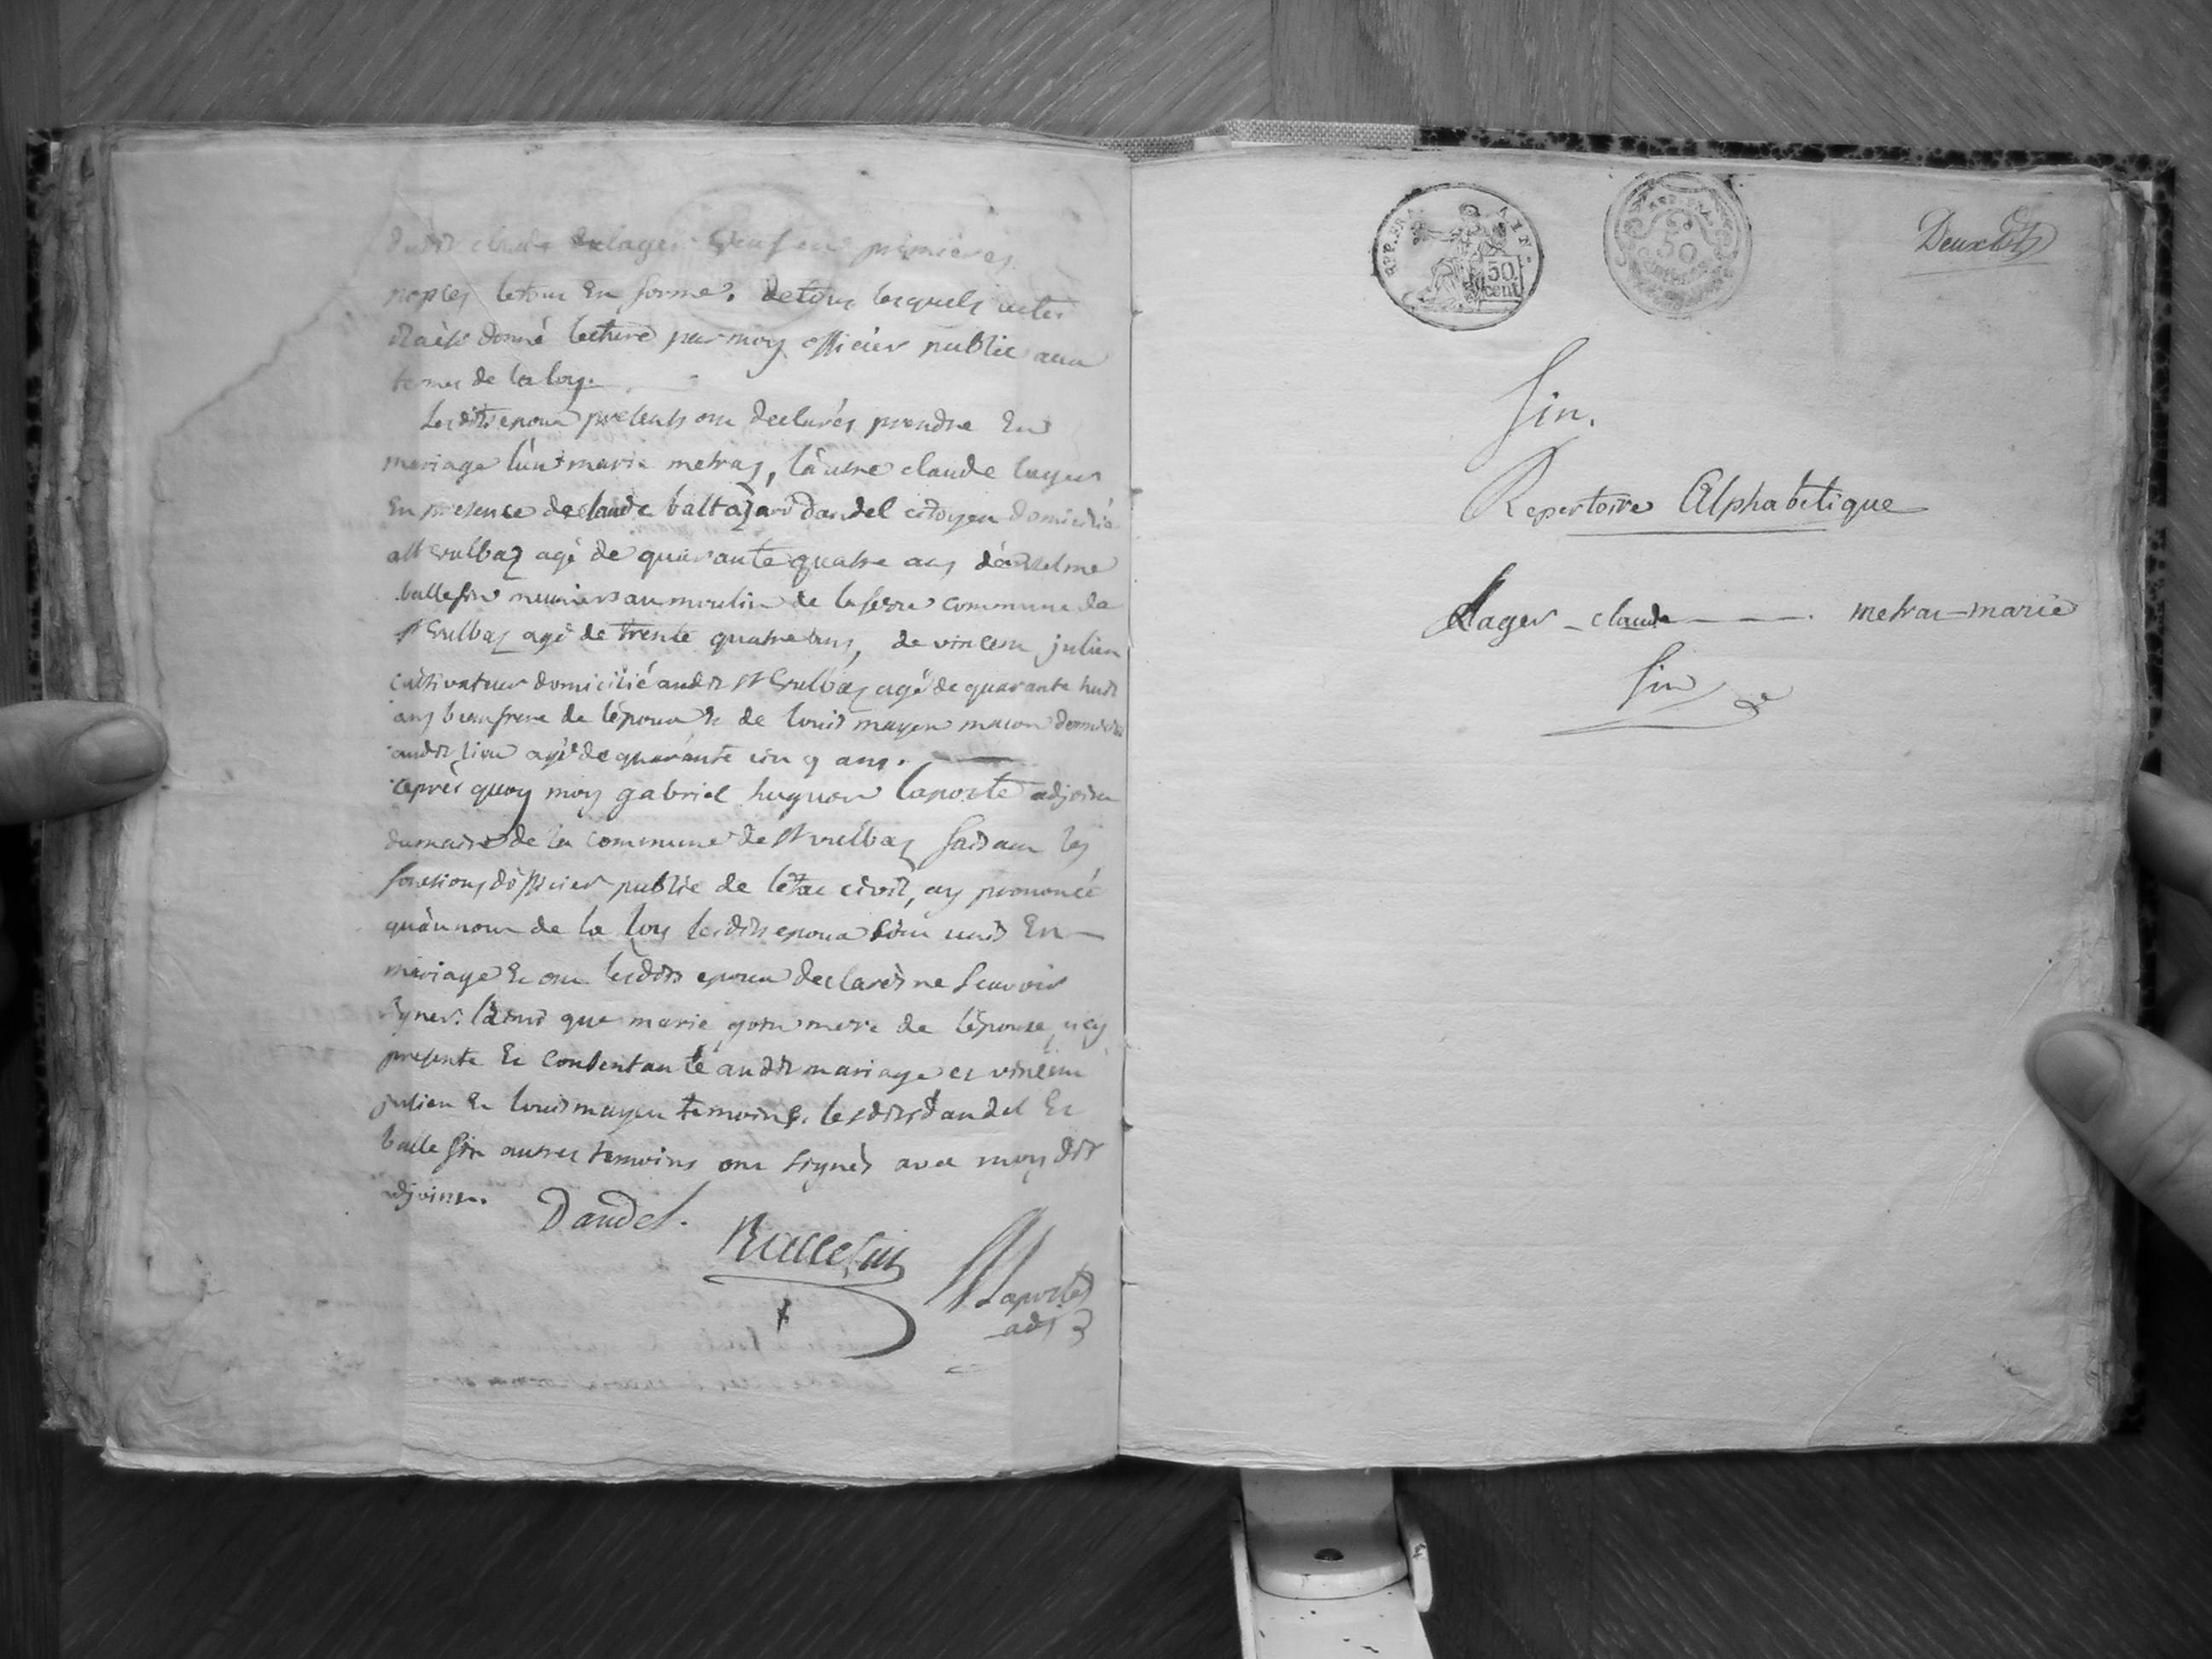 dudit claude delager veuf en premieres
nopces le tout En forme. de tous lesquels actes
il a été donné lecture par moy officier public aux
termes de la loy.
Lesdits epoux presents ont declarés prendre En
mariage l'un marie metraz, l'autre claude lager
En presence de claude baltazard dandel citoyen domicilié
a St vulbaz agé de quarante quatre ans, d'anthelme
ballefin meunier au moulin de la serre commune de
St vulbaz agé de trente quatre ans, de vincent julien
cultivateur domicilié audit St vulbaz agé de quarante huit
ans beaufrere de l'époux & de louis mayen macon domicilié
audit lieu agé de quarante cinq ans.
après quoy moy gabriel huguon laporte adjoint
du maire de la commune de St vulbaz faisant les
fonctions d'officier public de l'état civil, ay prononcé
qu'au nom de la loy lesdits epoux sont unis En
mariage Et ont lesdits epoux declarés ne scavoir
signer. ainsi que marie goin mere de l'épouse, icy
presente Et consentante audit mariage et vincent
julien Et louis mayen temoins. lesdits dandel Et
ballefin autres temoins ont signés avec moy dit
adjoint. Dandel.
Ballefin
Laporte
adj
REP. FRA. AIN.
50
cent.
50
Deux
fin.
Repertoire Alphabetique
Lager - claude metras - marie
fin